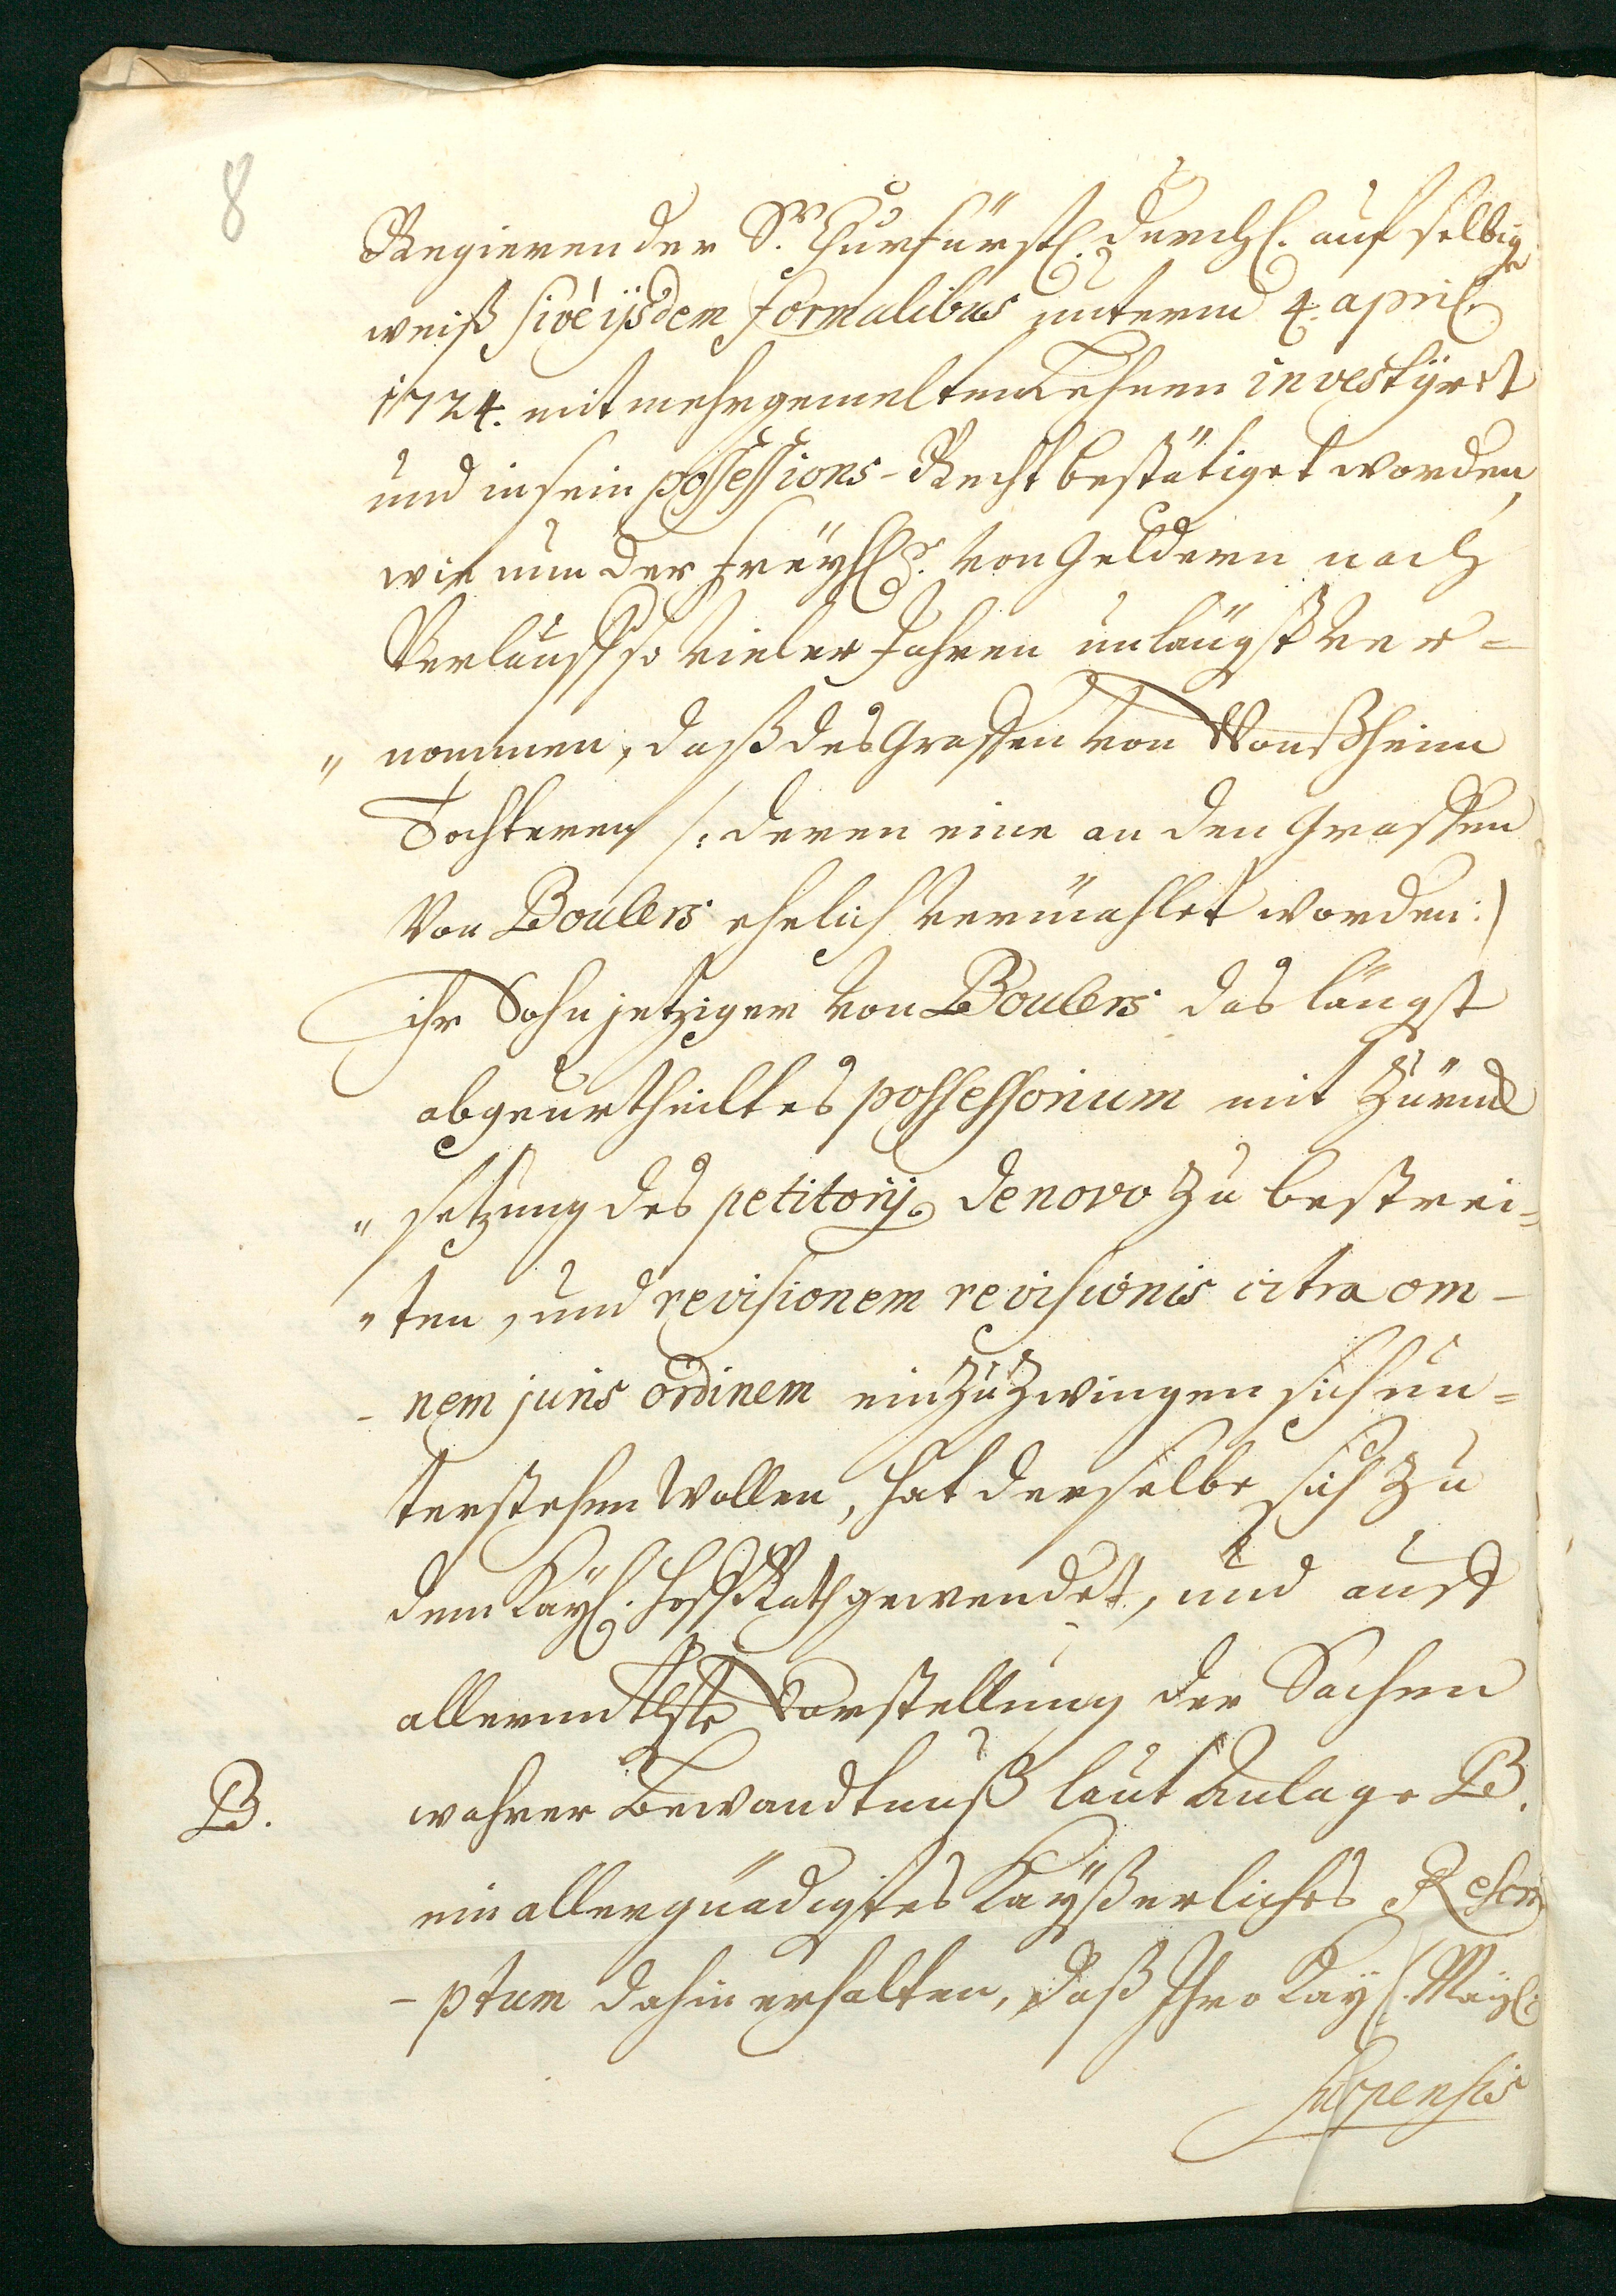 8
Regierender Sr. Churfürstl. Durchl. auf selbige
weiß sivè ijsdem formalibus unterm 4. april.
1724. mit mehrgemelten Lehnen investyret
und in sein possessions-Recht bestätiget worden,
wie nun der Freyh. von Geldern nach
Verlauff so vieler Jahren unlängst ver=
" nommen, daß des Graffen von Vonßheim
Tochteren /: deren eine an den Graffen
Von Boulers ehelich vermählet worden :/
ihr Sohn jetziger von Boulers das längst
abgeurtheiltes possessorium mit Zuruck
" setzung des petitorij de novo zu bestrei=
" ten, und revisionem revisionis citra om-
- nem juris ordinem einzuzwingen sich un=
terstehen wollen, hat derselbe sich zu
dem Kayl. HoffRath gewendet, und auff
allerunthste Vorstellung der Sachen
B. wahrer Bewandtnuß laut Anlage B.
ein allergnädigstes Kayßerliches Rescri
- ptum dahin erhalten, daß Ihro Kayl. Mayl.
suspensis